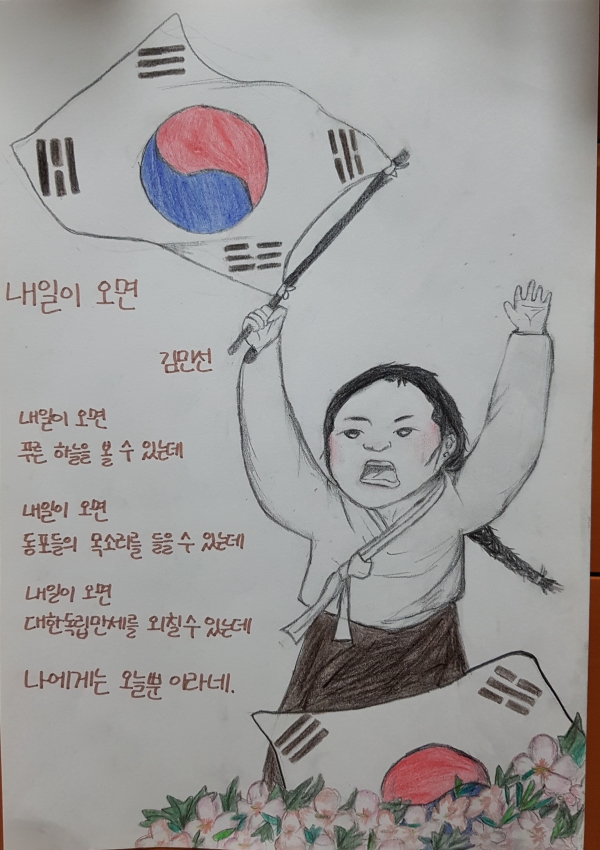 내일이 오면
김민선
내일이 오면
푸른 하늘을 볼 수 있는데
내일이 오면
동포들의 목소리를 들을 수 있는데
내일이 오면
대한독립만세를 외칠 수 있는데
나에게는 오늘뿐 이라네.